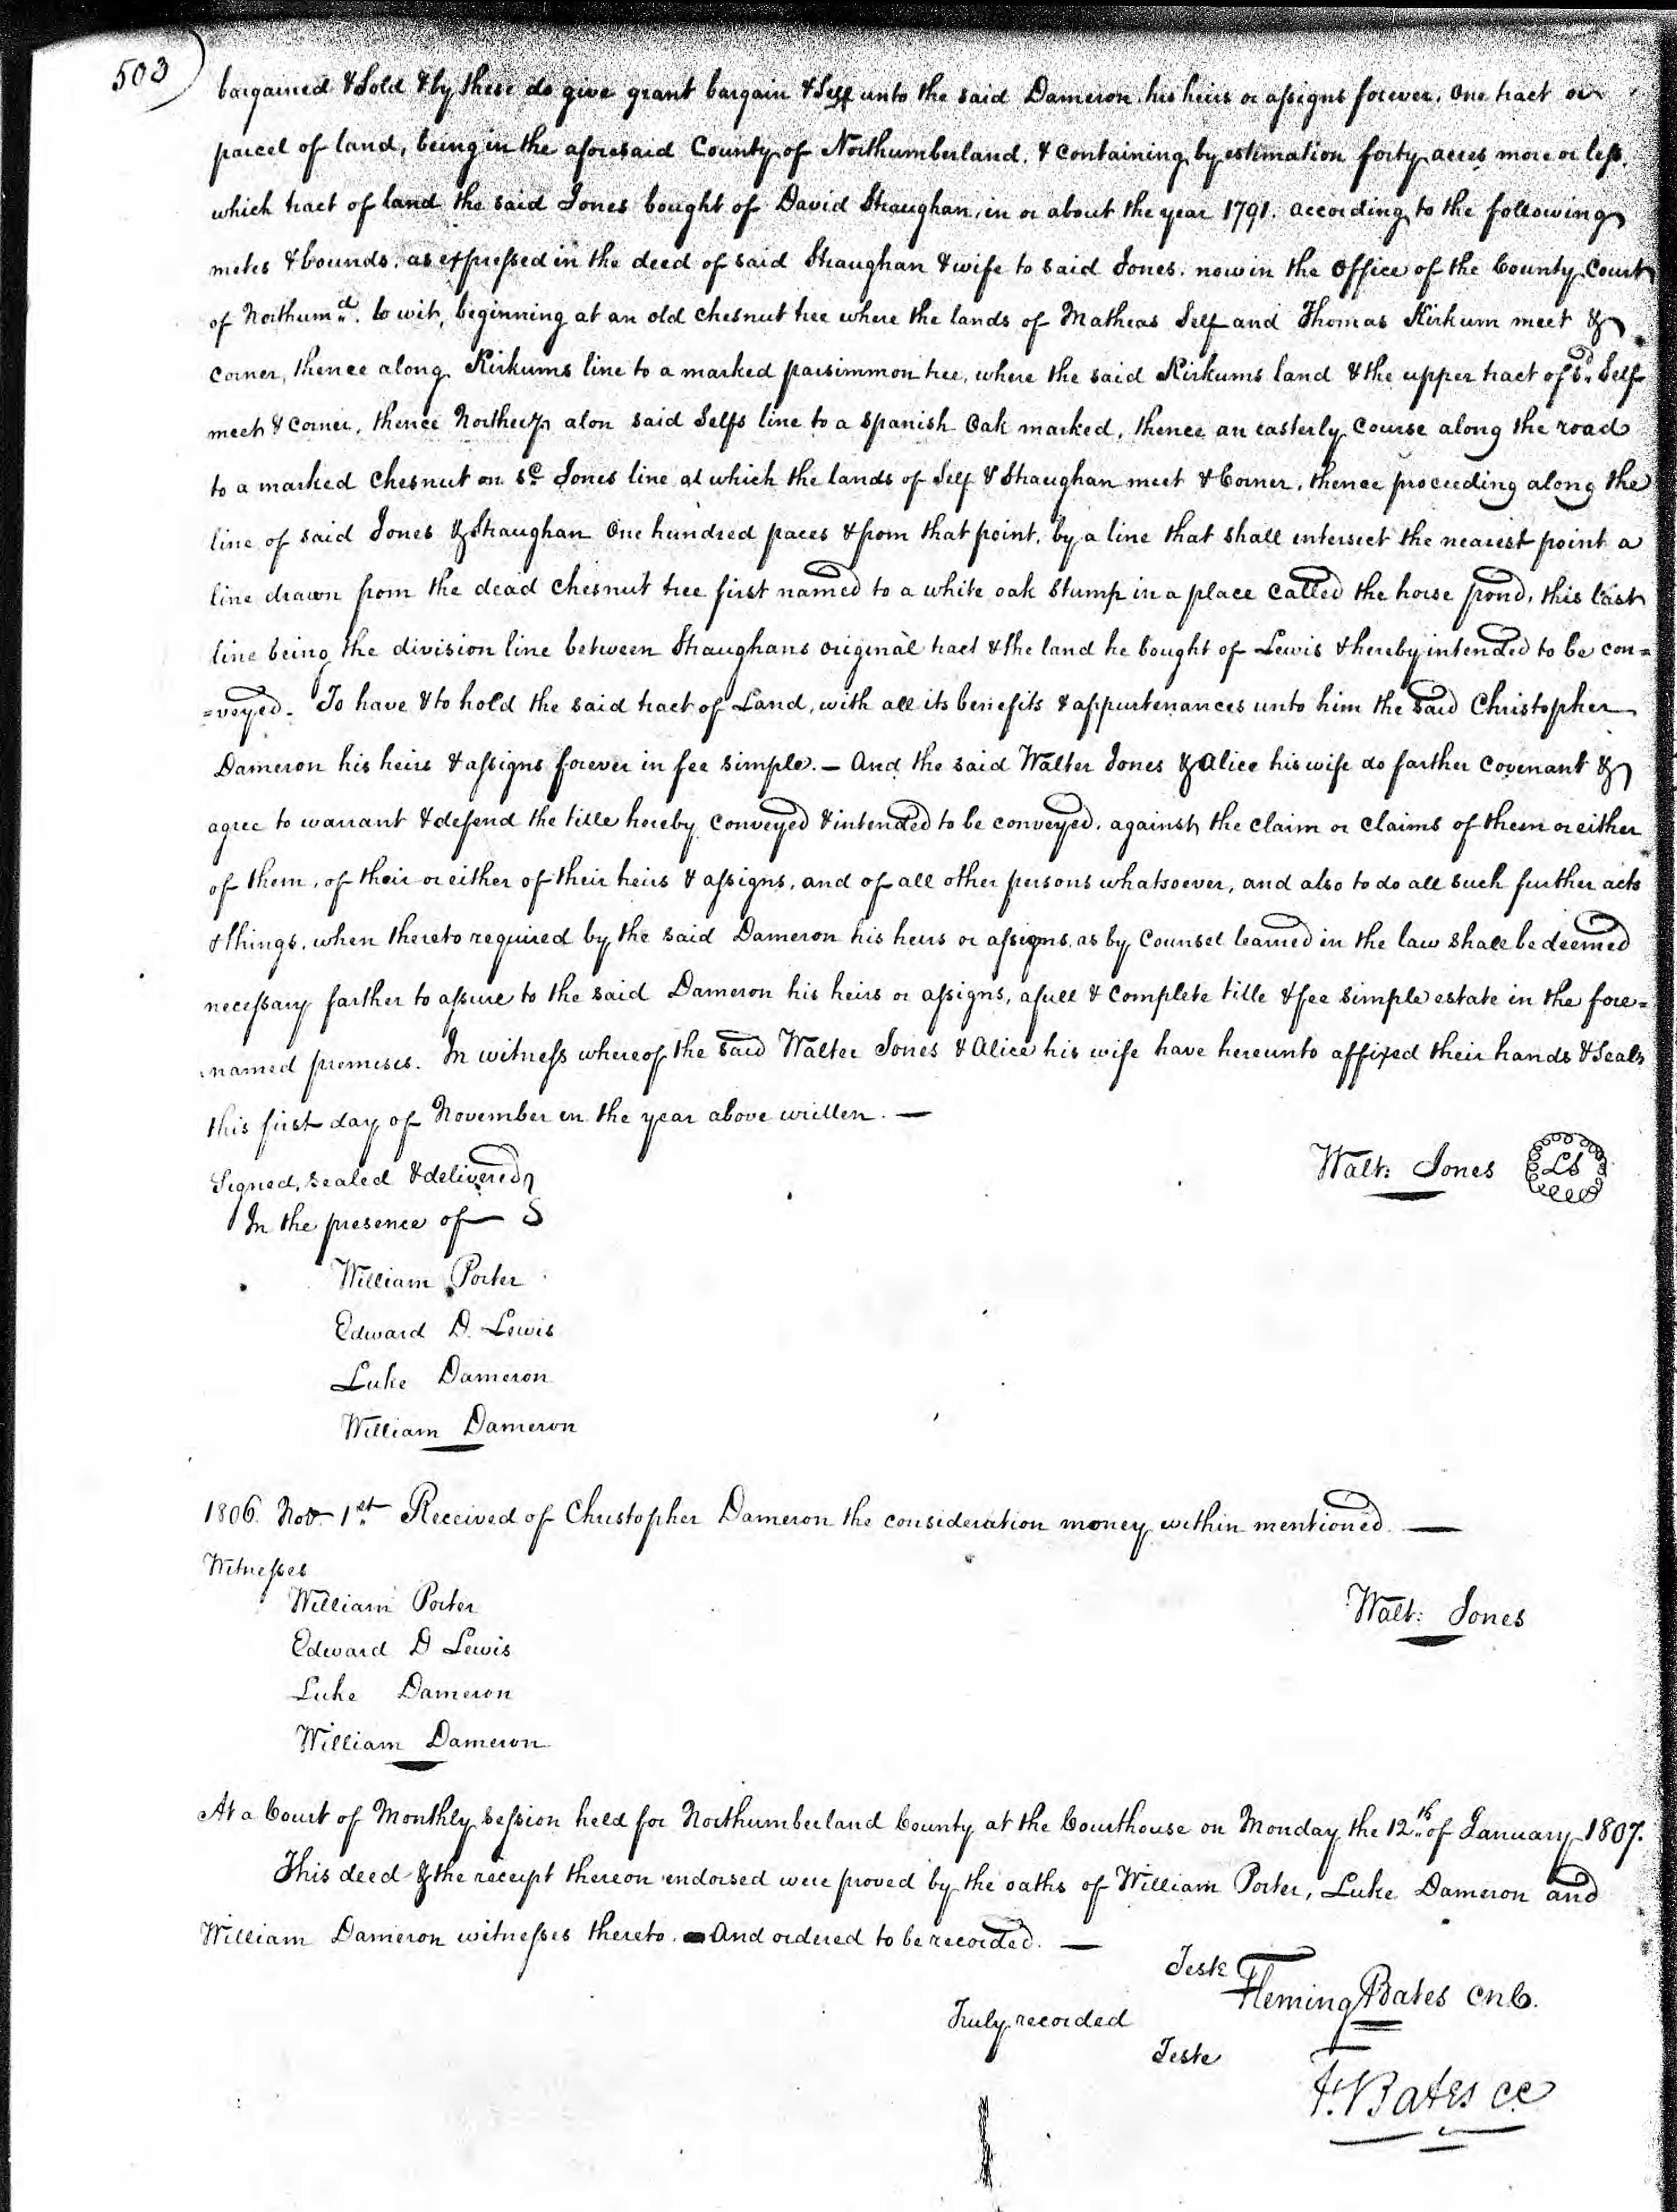 503
bargained & Sold & by these do give grant bargain & Sell unto the said Dameron, his heirs or assigns forever, One tract or
parcel of land, being in the aforesaid County of Northumberland, & containing by estimation forty acres more or less.
which tract of land the said Jones bought of David Straughan, in or about the year 1791. according to the following
metes & bounds, as expressed in the deed of said Straughan & wife to said Jones. now in the Office of the County Court
of Northumd. to wit, beginning at an old chesnut tree where the lands of Mathias Self and Thomas Kirkum meet &
corner, thence along Kirkums line to a marked parsimmon tree, where the said Kirkums land & the upper tract of sd. Self
meet & corner, thence Northerly alon said Selfs line to a Spanish Oak marked, thence an easterly course along the road
to a marked chesnut on sd Jones line at which the lands of Self & Straughan meet & Corner, thence proceeding along the
line of said Jones & Straughan One hundred paces & from that point, by a line that shall intersect the nearest point a
line drawn from the dead chesnut tree first named to a white oak Stump in a place called the horse pond, this last
line being the division line between Straughans original tract & the land he bought of Lewis & hereby intended to be con=
=veyed. To have & to hold the said tract of Land, with all its benefits & appurtenances unto him the said Christopher
Dameron his heirs & assigns forever in fee simple. — And the said Walter Jones & Alice his wife do farther covenant &
agree to warrant & defend the title hereby conveyed & intended to be conveyed, against the claim or claims of them or either
of them, of their or either of their heirs & assigns, and of all other persons whatsoever, and also to do all such further acts
& things, when thereto required by the said Dameron his heirs or assigns, as by Counsel learned in the law shall be deemed
necessary farther to assure to the said Dameron his heirs or assigns, a full & complete title & fee simple estate in the fore=
named premises. In witness whereof the said Walter Jones & Alice his wife have hereunto affixed their hands & Seals
this first day of November in the year above written. —
Signed, sealed & delivered
Walt: Jones LS
In the presence of
William Porter
Edward D. Lewis
Luke Dameron
William Dameron
1806. Nov. 1st Received of Christopher Dameron the consideration money within mentioned. —
Witnesses
William Porter
Walt: Jones
Edward D Lewis
Luke Dameron
William Dameron
At a Court of Monthly Session held for Northumberland County at the Courthouse on Monday the 12th of January 1807.
This deed & the receipt thereon endorsed were proved by the oaths of William Porter, Luke Dameron and
William Dameron witnesses thereto. And ordered to be recorded. —
Teste
Fleming Bates CNC.
Truly recorded
Teste
F. Bates CC